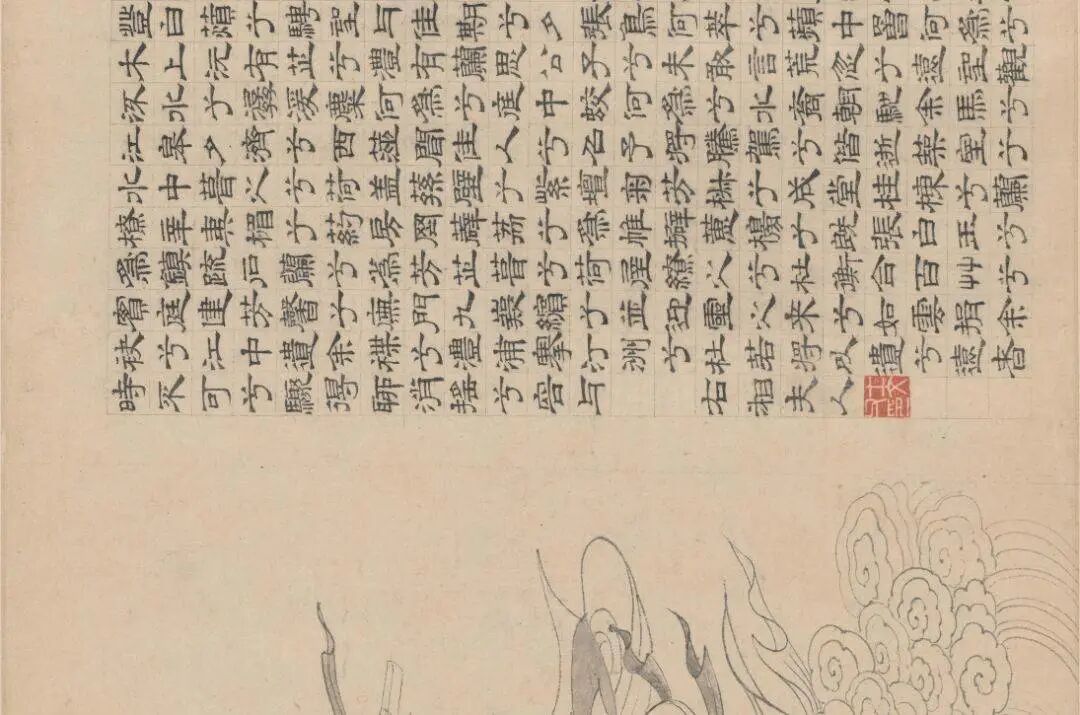 登白蘋兮騁望与佳期兮夕張鳥萃兮蘋中罾何爲兮
木上沅有芷兮澧有蘭思公子兮未敢言荒忽兮遠望觀
流水兮潺湲麋何爲兮庭中蛟何爲兮水裔朝馳余馬兮
江皋夕濟兮西澨聞佳人兮召予將騰駕兮偕逝築室兮
水中葺之兮荷盖蓀壁兮紫壇芳椒兮成堂桂棟兮蘭
橑辛夷楣兮葯房罔薜荔兮爲帷擗蕙櫋兮既張白玉兮
爲鎮疏石蘭兮爲芳芷葺兮荷屋繚之兮杜衡合百艸兮
實庭建芳馨兮廡門九疑繽兮並迎靈之来兮如雲捐余
袂兮江中遺余褋兮澧浦搴汀洲兮杜若將以遺兮遠者
時不可兮驟得聊逍遙兮容与 右湘夫人